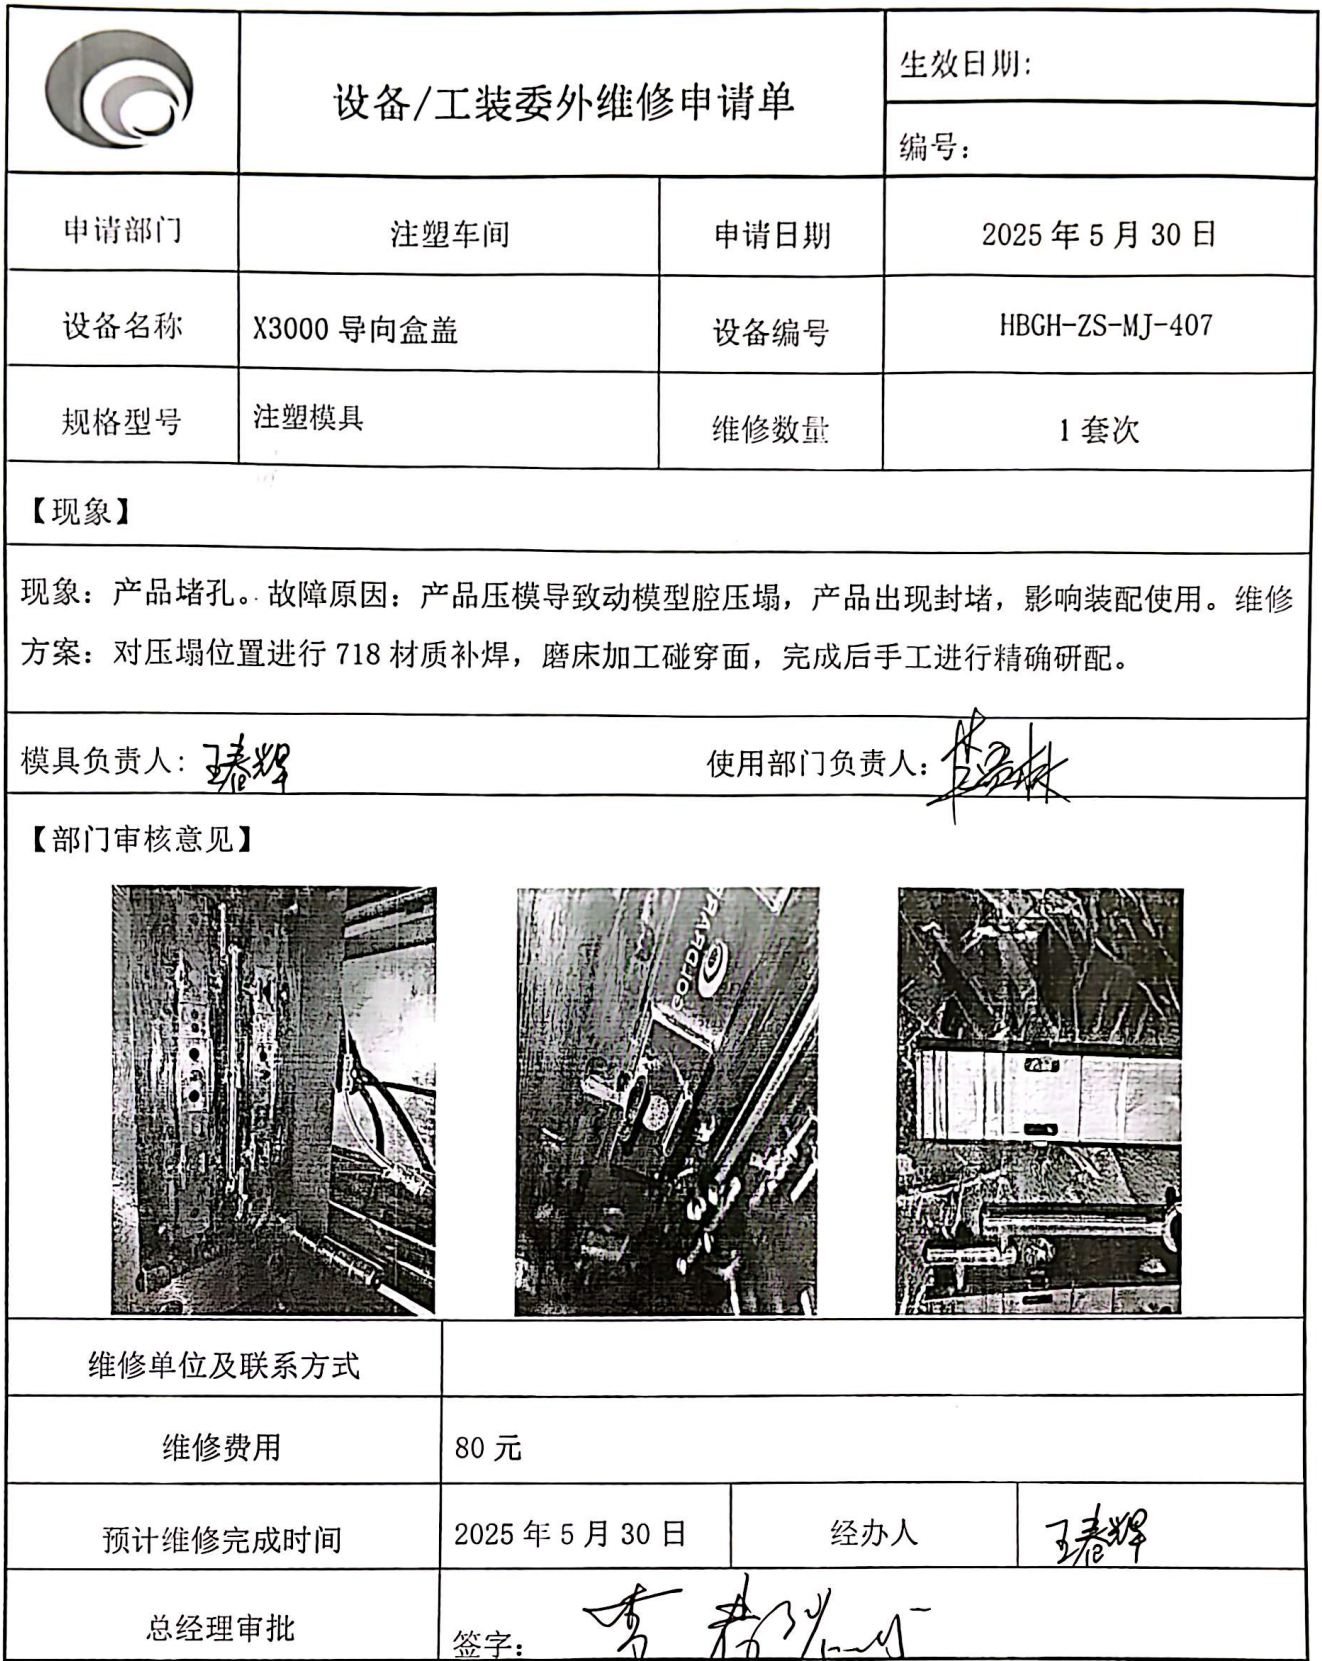 设备/工装委外维修申请单
生效日期:
编号:
申请部门 注塑车间 申请日期 2025年5月30日
设备名称 X3000 导向盒盖 设备编号 HBGH-ZS-MJ-407
规格型号 注塑模具 维修数量 1 套次
【现象】
现象：产品堵孔。故障原因：产品压模导致动模型腔压塌，产品出现封堵，影响装配使用。维修
方案：对压塌位置进行 718 材质补焊，磨床加工碰穿面，完成后手工进行精确研配。
模具负责人: 王春辉 使用部门负责人:
【部门审核意见】
维修单位及联系方式
维修费用 80 元
预计维修完成时间 2025年5月30日 经办人 王春辉
总经理审批 签字: